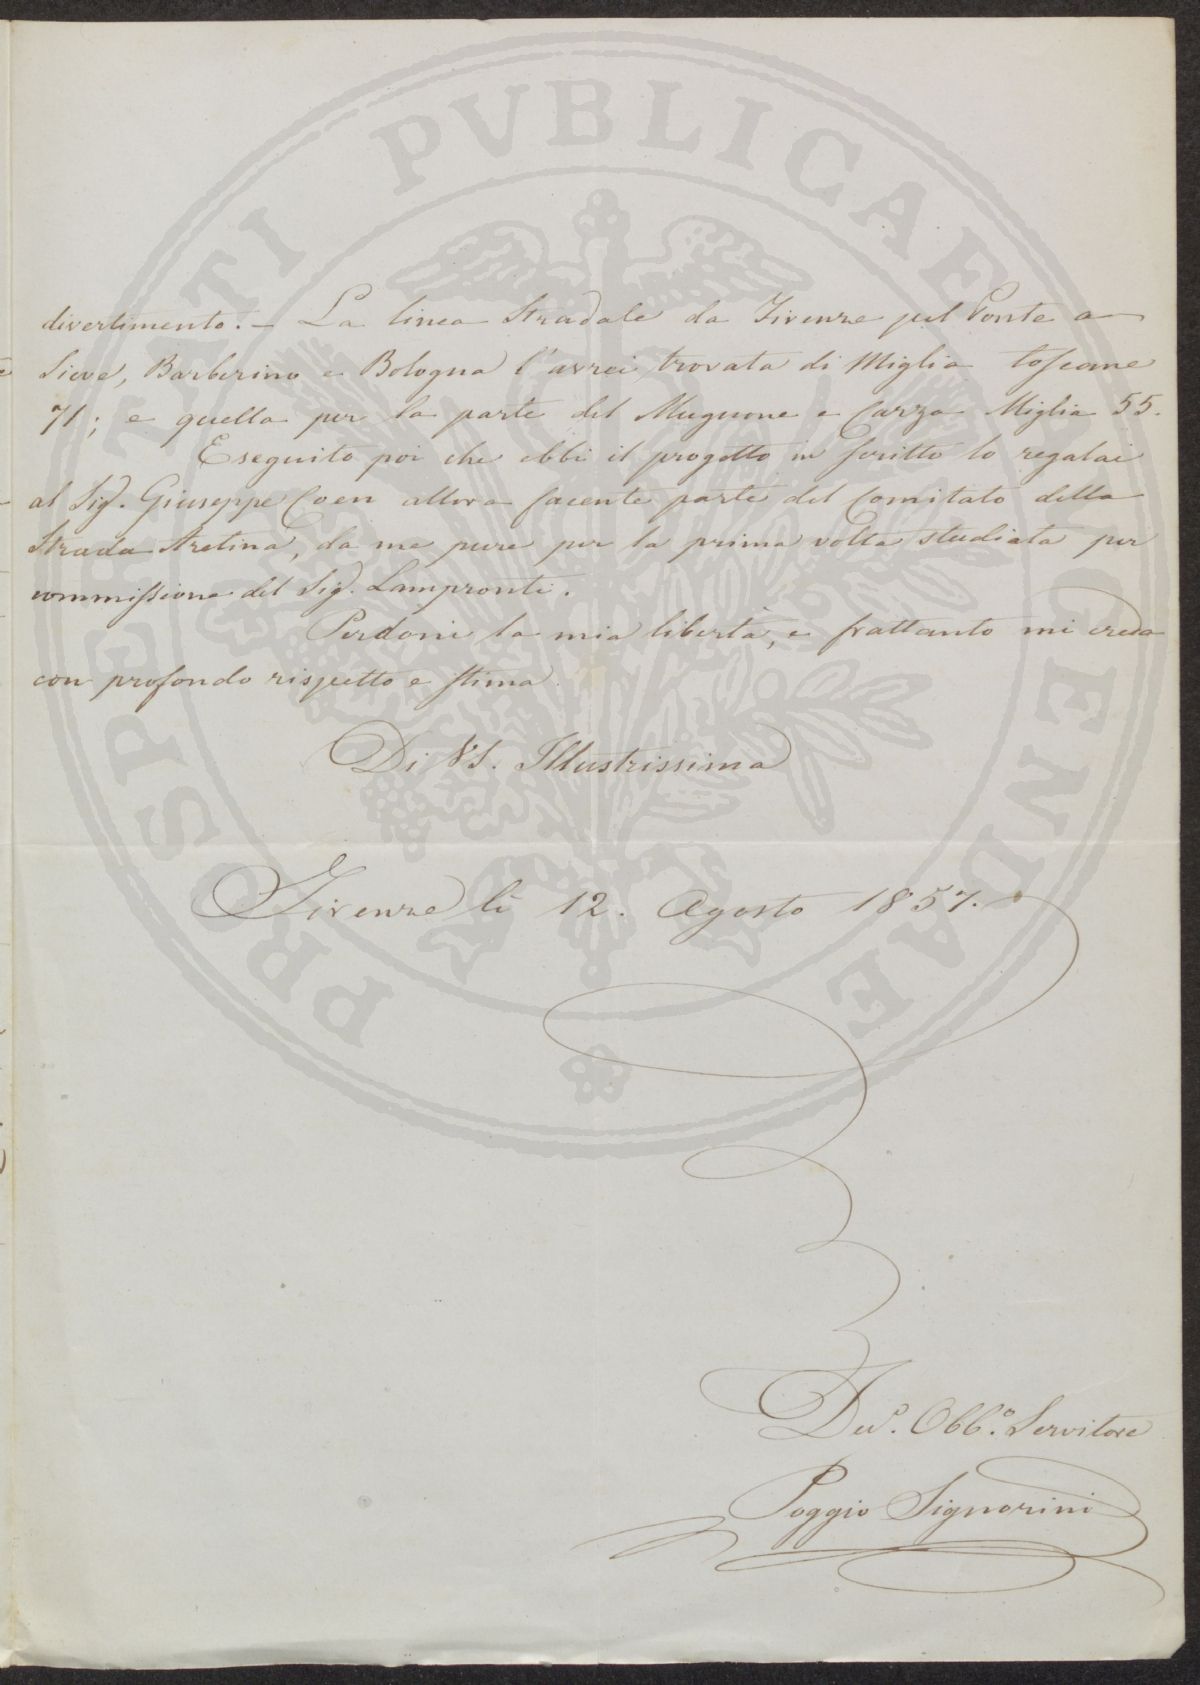 divertimento. — La linea Stradale da Firenze pel Ponte a
Sieve, Barberino e Bologna l'avrei trovata di Miglia toscane
71; e quella per la parte del Mugnone e Carza Miglia 55.
Eseguito poi che ebbi il progetto in scritto lo regalai
al Sig. Giuseppe Coen allora facente parte del Comitato della
Strada Aretina, da me pure per la prima volta studiata per
commissione del Sig. Lampronti.
Perdoni la mia libertà, e frattanto mi creda
con profondo rispetto e stima.
Di VS. Illustrissima
Firenze lì 12. Agosto 1857.
Dev.º Obb.º Servitore
Poggio Signorini
PROSPERITATI PVBLICAE AVGENDAE